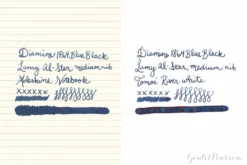 Diamine 1864 Blue Black
Lamy Al-Star, medium nib
Moleskine Notebook
xxxxxx
Diamine 1864 Blue Black
Lamy Al-Star, medium nib
Tomoe River, white
xxxxxx
GouletPens.com